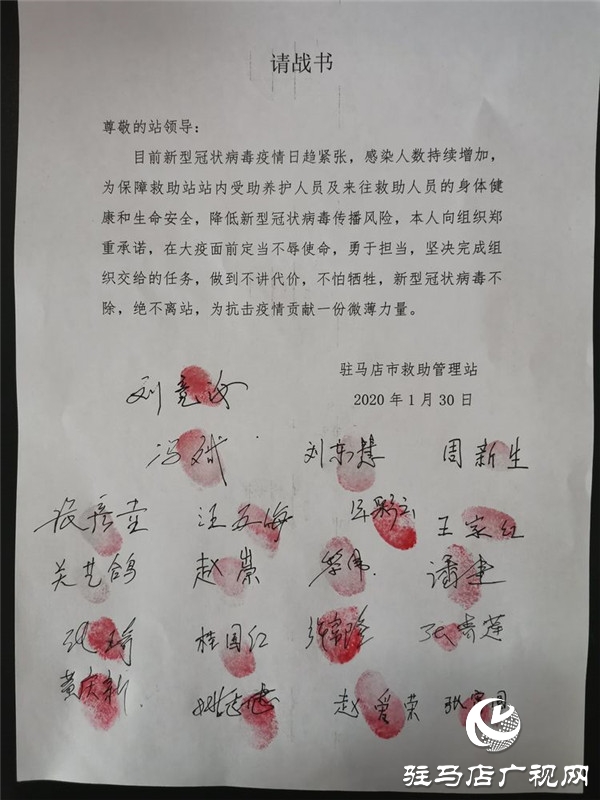 请战书
尊敬的站领导：
目前新型冠状病毒疫情日趋紧张，感染人数持续增加，
为保障救助站站内受助养护人员及来往救助人员的身体健
康和生命安全，降低新型冠状病毒传播风险，本人向组织郑
重承诺，在大疫面前定当不辱使命，勇于担当，坚决完成组
织交给的任务，做到不讲代价，不怕牺牲，新型冠状病毒不
除，绝不离站，为抗击疫情贡献一份微薄力量。
驻马店市救助管理站
2020年1月30日
刘竟汝
冯斌 刘东慧 周新生
汪五海 王家红
关艺鸽 赵崇 李伟 潘建
桂国红
黄庆新 赵爱荣
驻马店广视网